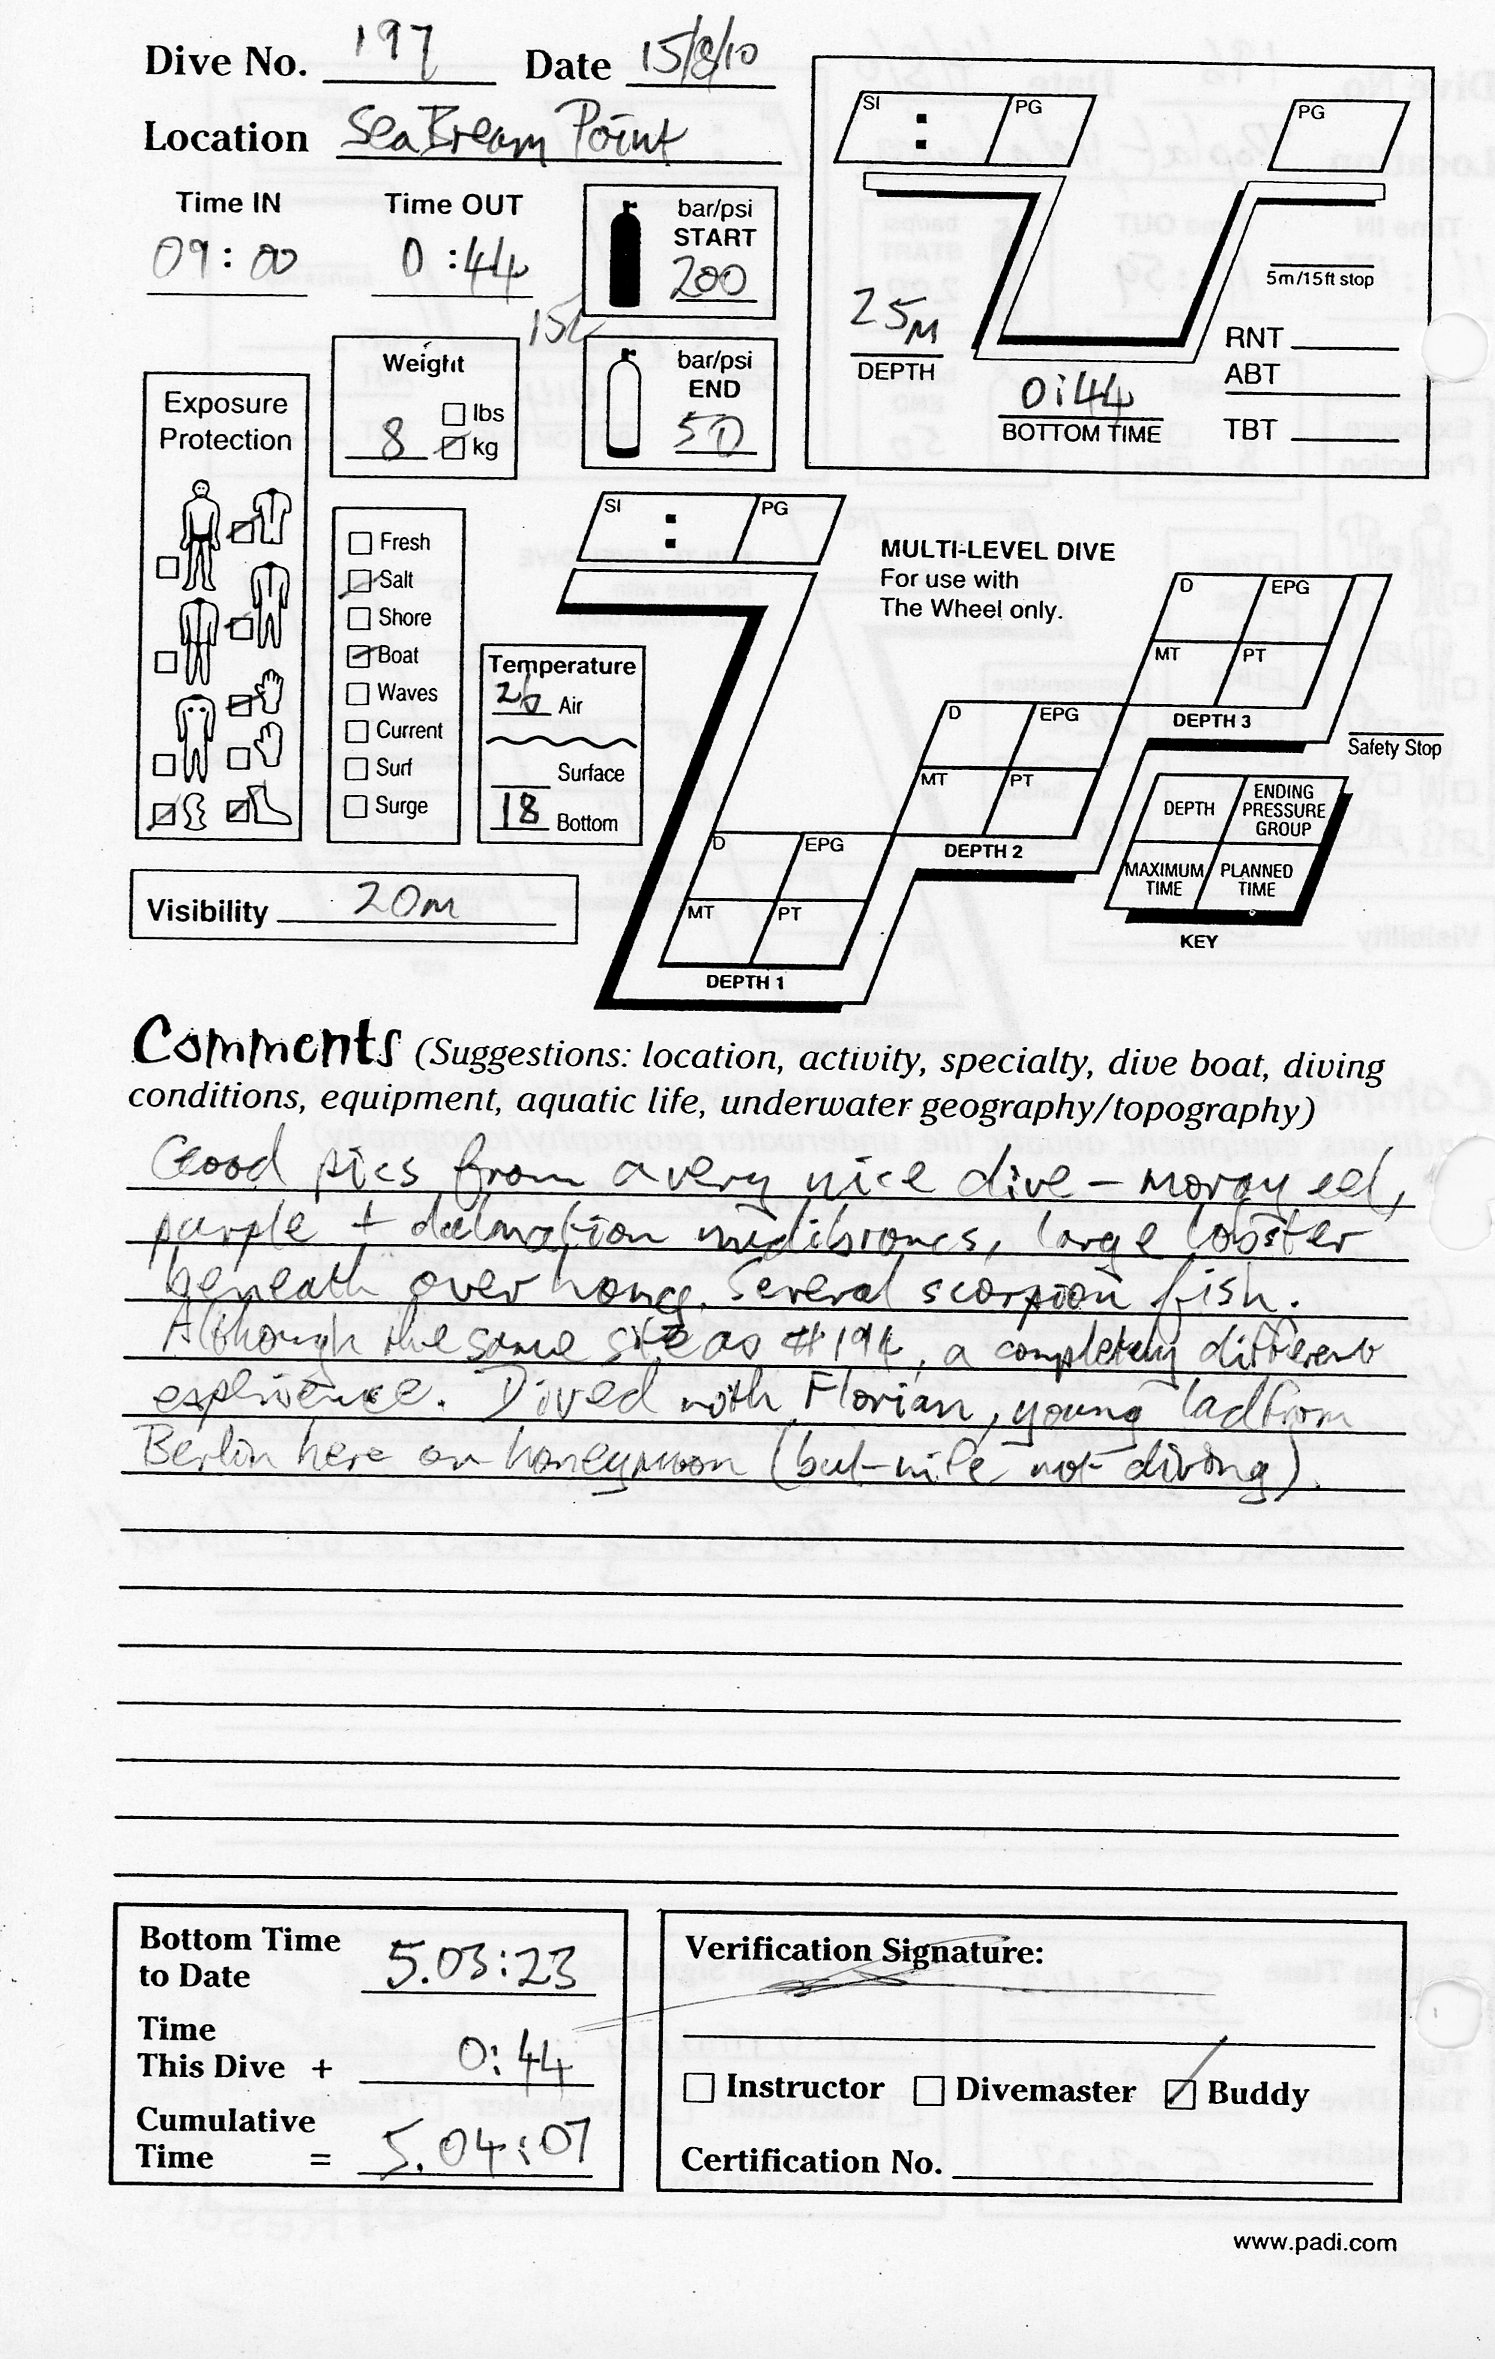 Dive No. 197 Date 15/8/10
Location SeaBream Point
Time IN Time OUT
09:00 0:44
bar/psi
START
200
15L
bar/psi
END
50
Weight
8
lbs
kg
Exposure
Protection
Fresh
Salt
Shore
Boat
Waves
Current
Surf
Surge
Temperature
26 Air
Surface
18 Bottom
Visibility 20m
SI : PG
PG
25M
DEPTH
0:44
BOTTOM TIME
5m/15ft stop
RNT
ABT
TBT
SI : PG
MULTI-LEVEL DIVE
For use with
The Wheel only.
D EPG
MT PT
DEPTH 3
Safety Stop
D EPG
MT PT
DEPTH 2
D EPG
MT PT
DEPTH 1
DEPTH ENDING PRESSURE GROUP
MAXIMUM TIME PLANNED TIME
KEY
Comments (Suggestions: location, activity, specialty, dive boat, diving
conditions, equipment, aquatic life, underwater geography/topography)
Good pics from a very nice dive – moray eel,
purple + dalmation nudibranchs, large lobster
beneath overhang. Several scorpion fish.
Although the same site as #194, a completely different
experience. Dived with Florian, young lad from
Berlin here on honeymoon (but wife not diving).
Bottom Time
to Date 5.03:23
Time
This Dive + 0:44
Cumulative
Time = 5.04:07
Verification Signature:
Instructor Divemaster Buddy
Certification No.
www.padi.com